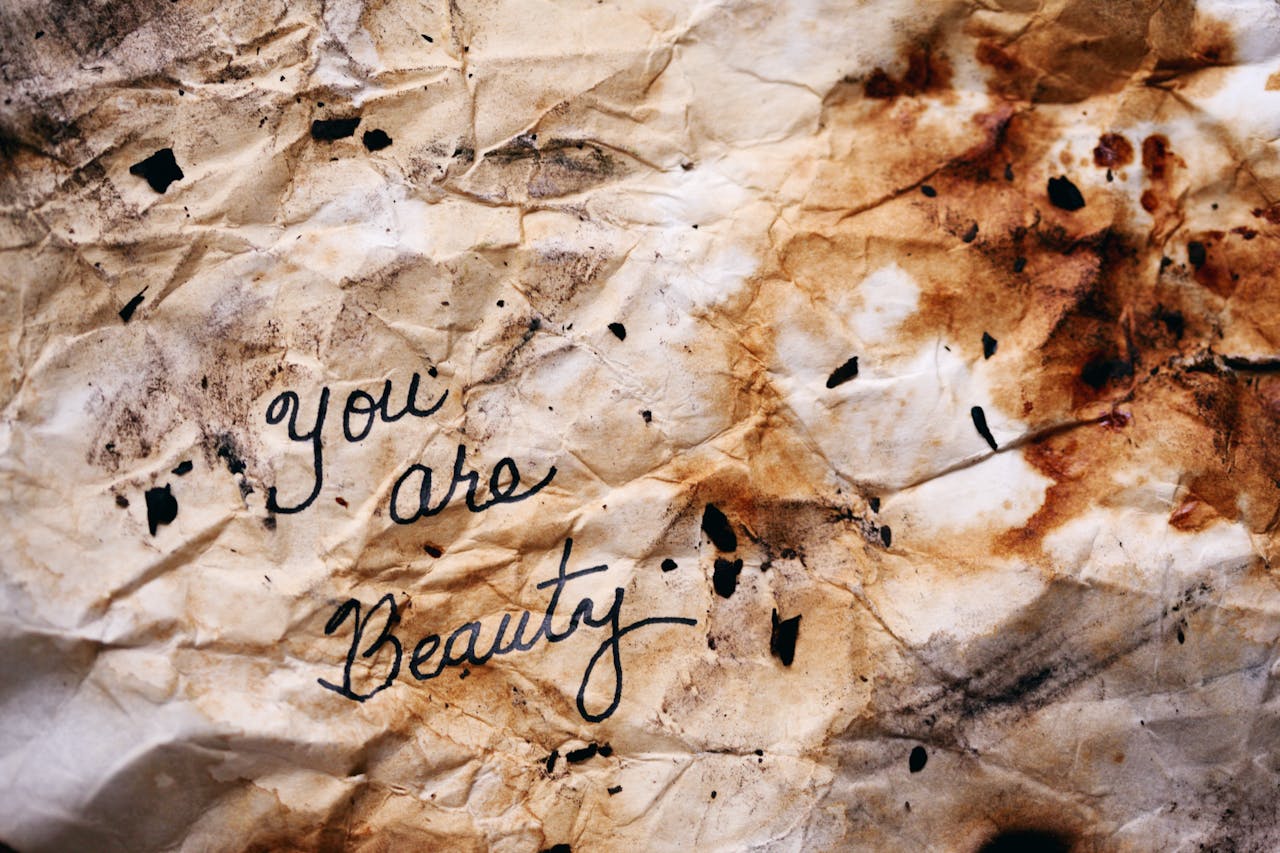 You
are
Beauty